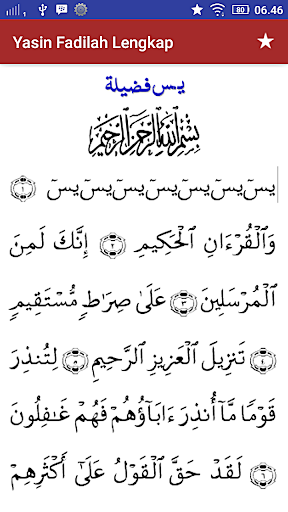 06.46
Yasin Fadilah Lengkap
يس فضيلة
بِسْمِ ٱللَّهِ ٱلرَّحْمَٰنِ ٱلرَّحِيمِ
يسٓ يسٓ يسٓ يسٓ يسٓ يسٓ يسٓ ۝١
وَٱلْقُرْءَانِ ٱلْحَكِيمِ ۝٢ إِنَّكَ لَمِنَ
ٱلْمُرْسَلِينَ ۝٣ عَلَىٰ صِرَٰطٍ مُّسْتَقِيمٍ
۝٤ تَنزِيلَ ٱلْعَزِيزِ ٱلرَّحِيمِ ۝٥ لِتُنذِرَ
قَوْمًا مَّآ أُنذِرَ ءَابَآؤُهُمْ فَهُمْ غَٰفِلُونَ
۝٦ لَقَدْ حَقَّ ٱلْقَوْلُ عَلَىٰٓ أَكْثَرِهِمْ